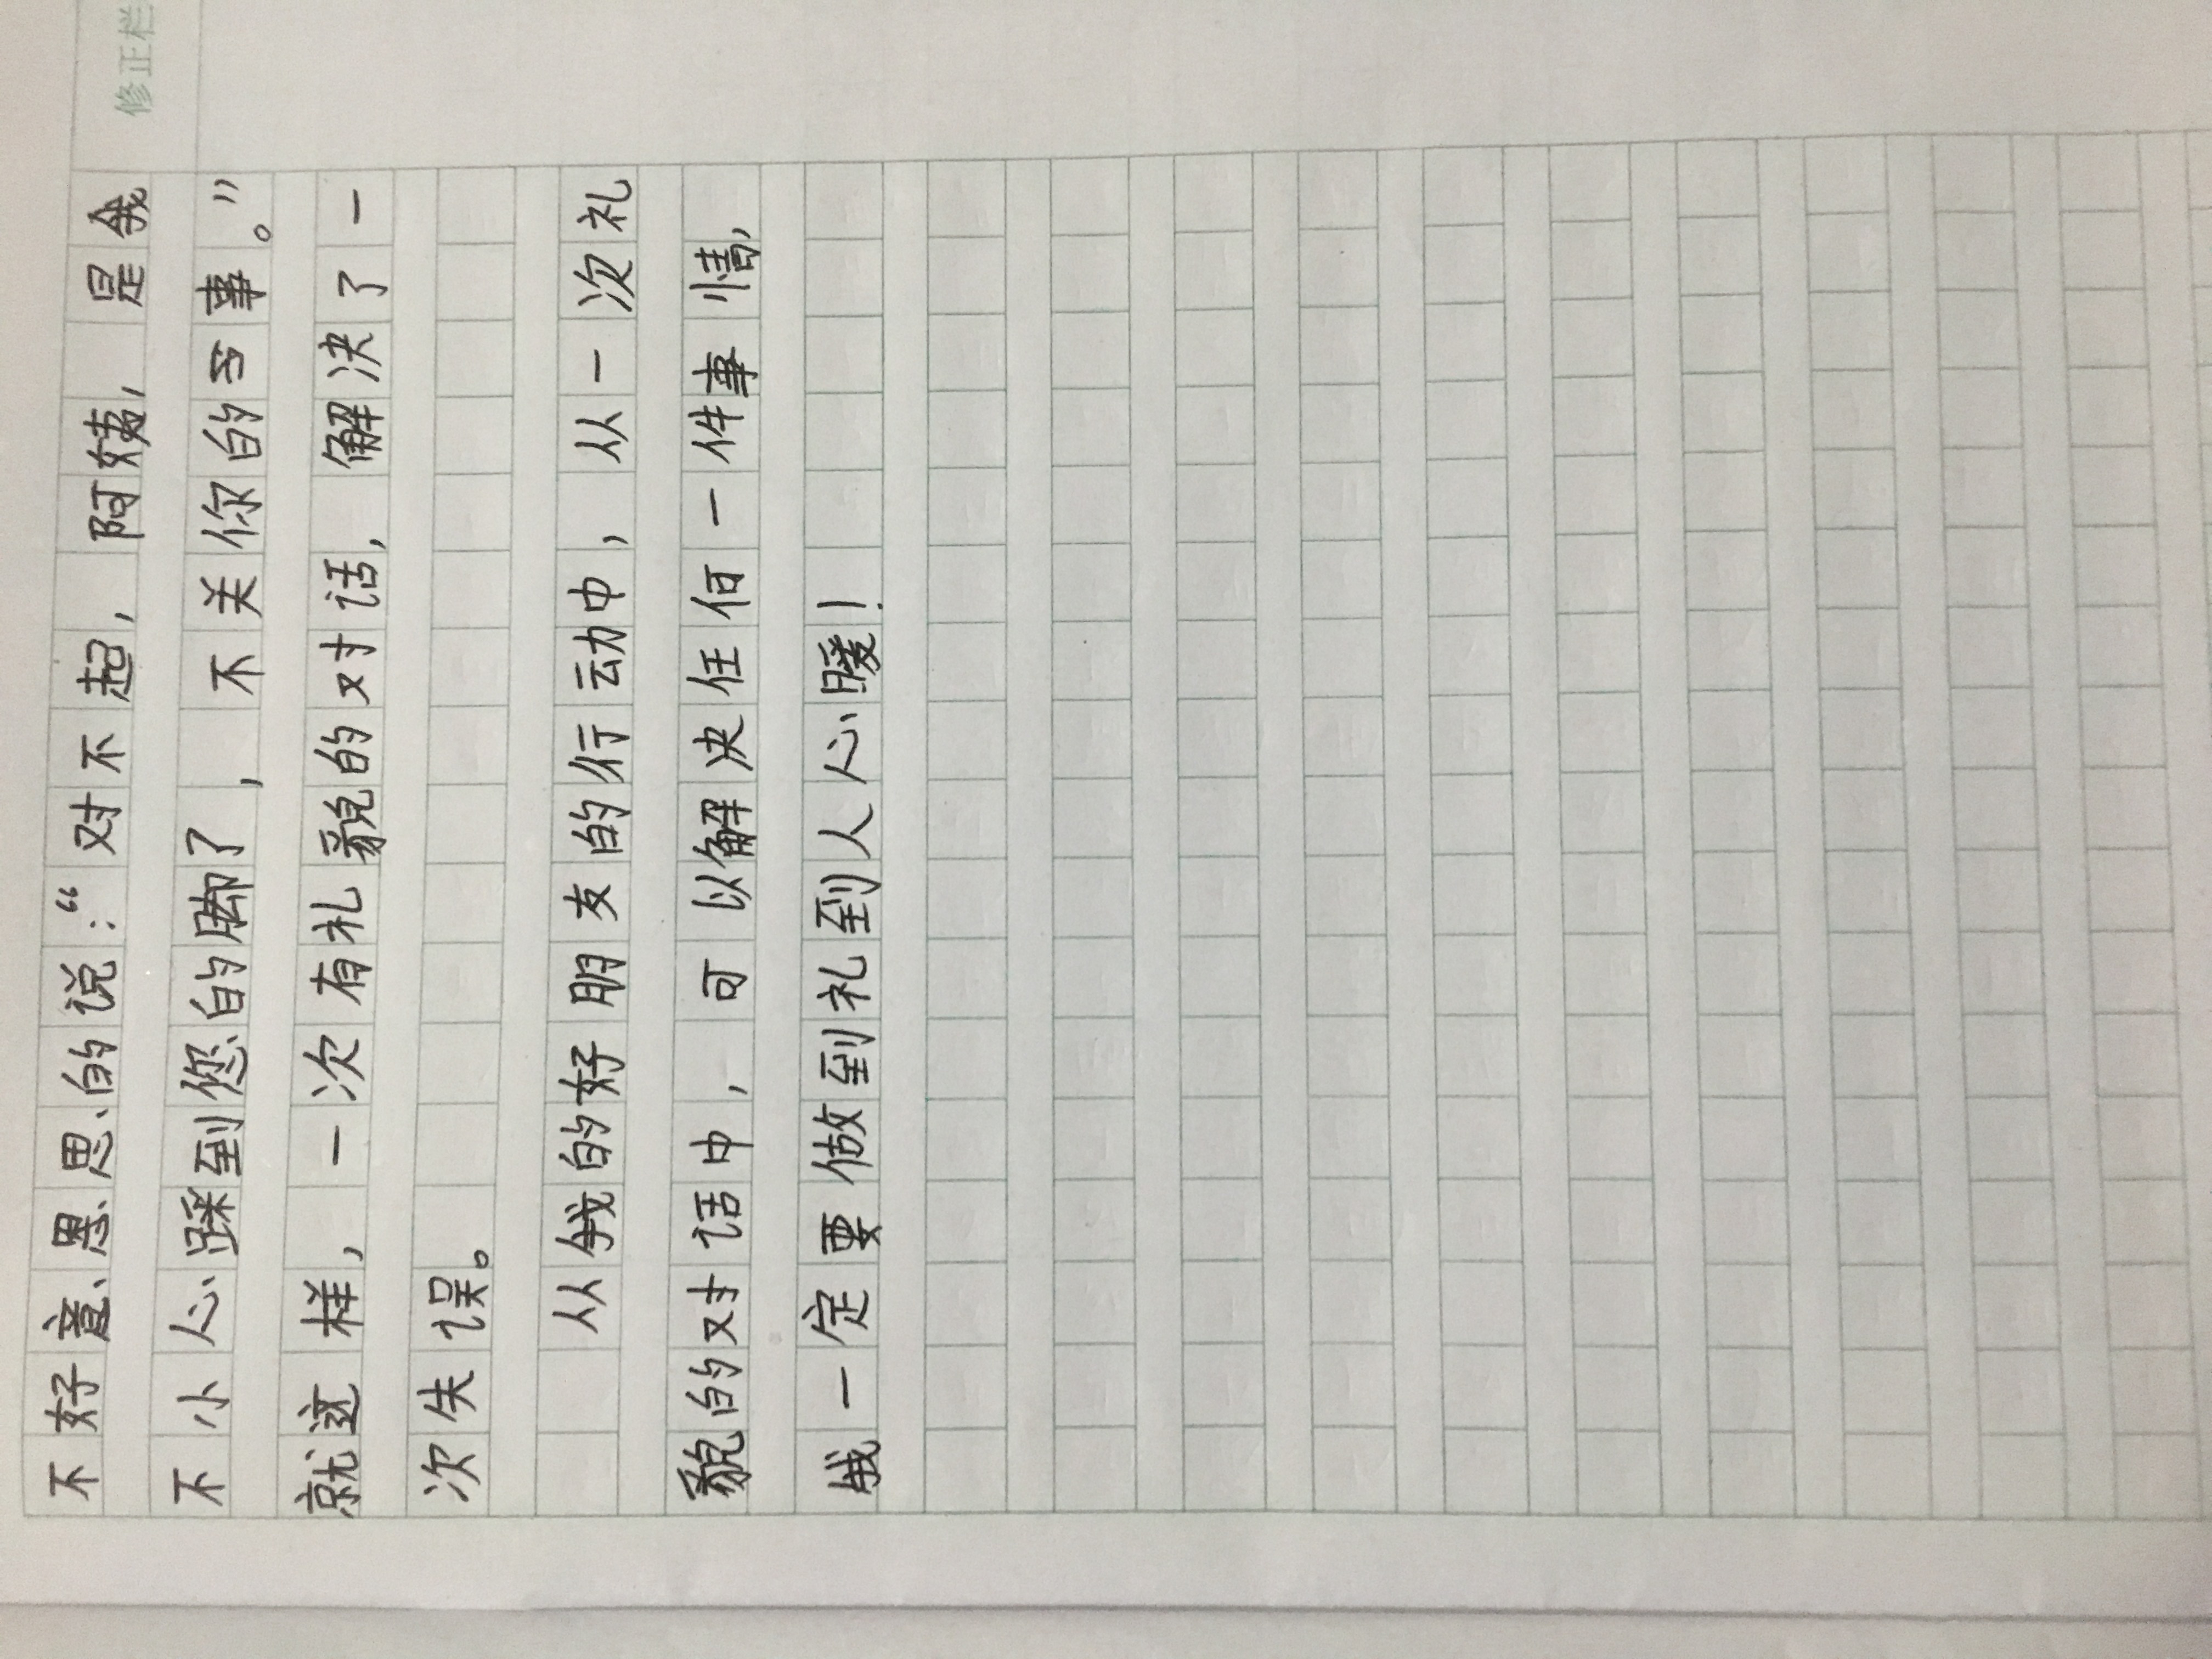 修正栏
不好意思思的说：“对不起，阿姨，是我
不小心踩到您的脚了，不关你的事。”
就这样，一次有礼貌的对话，解决了一
次失误。
从我的好朋友的行动中，从一次礼
貌的对话中，可以解决任何一件事情，
我一定要做到礼到人心暖！